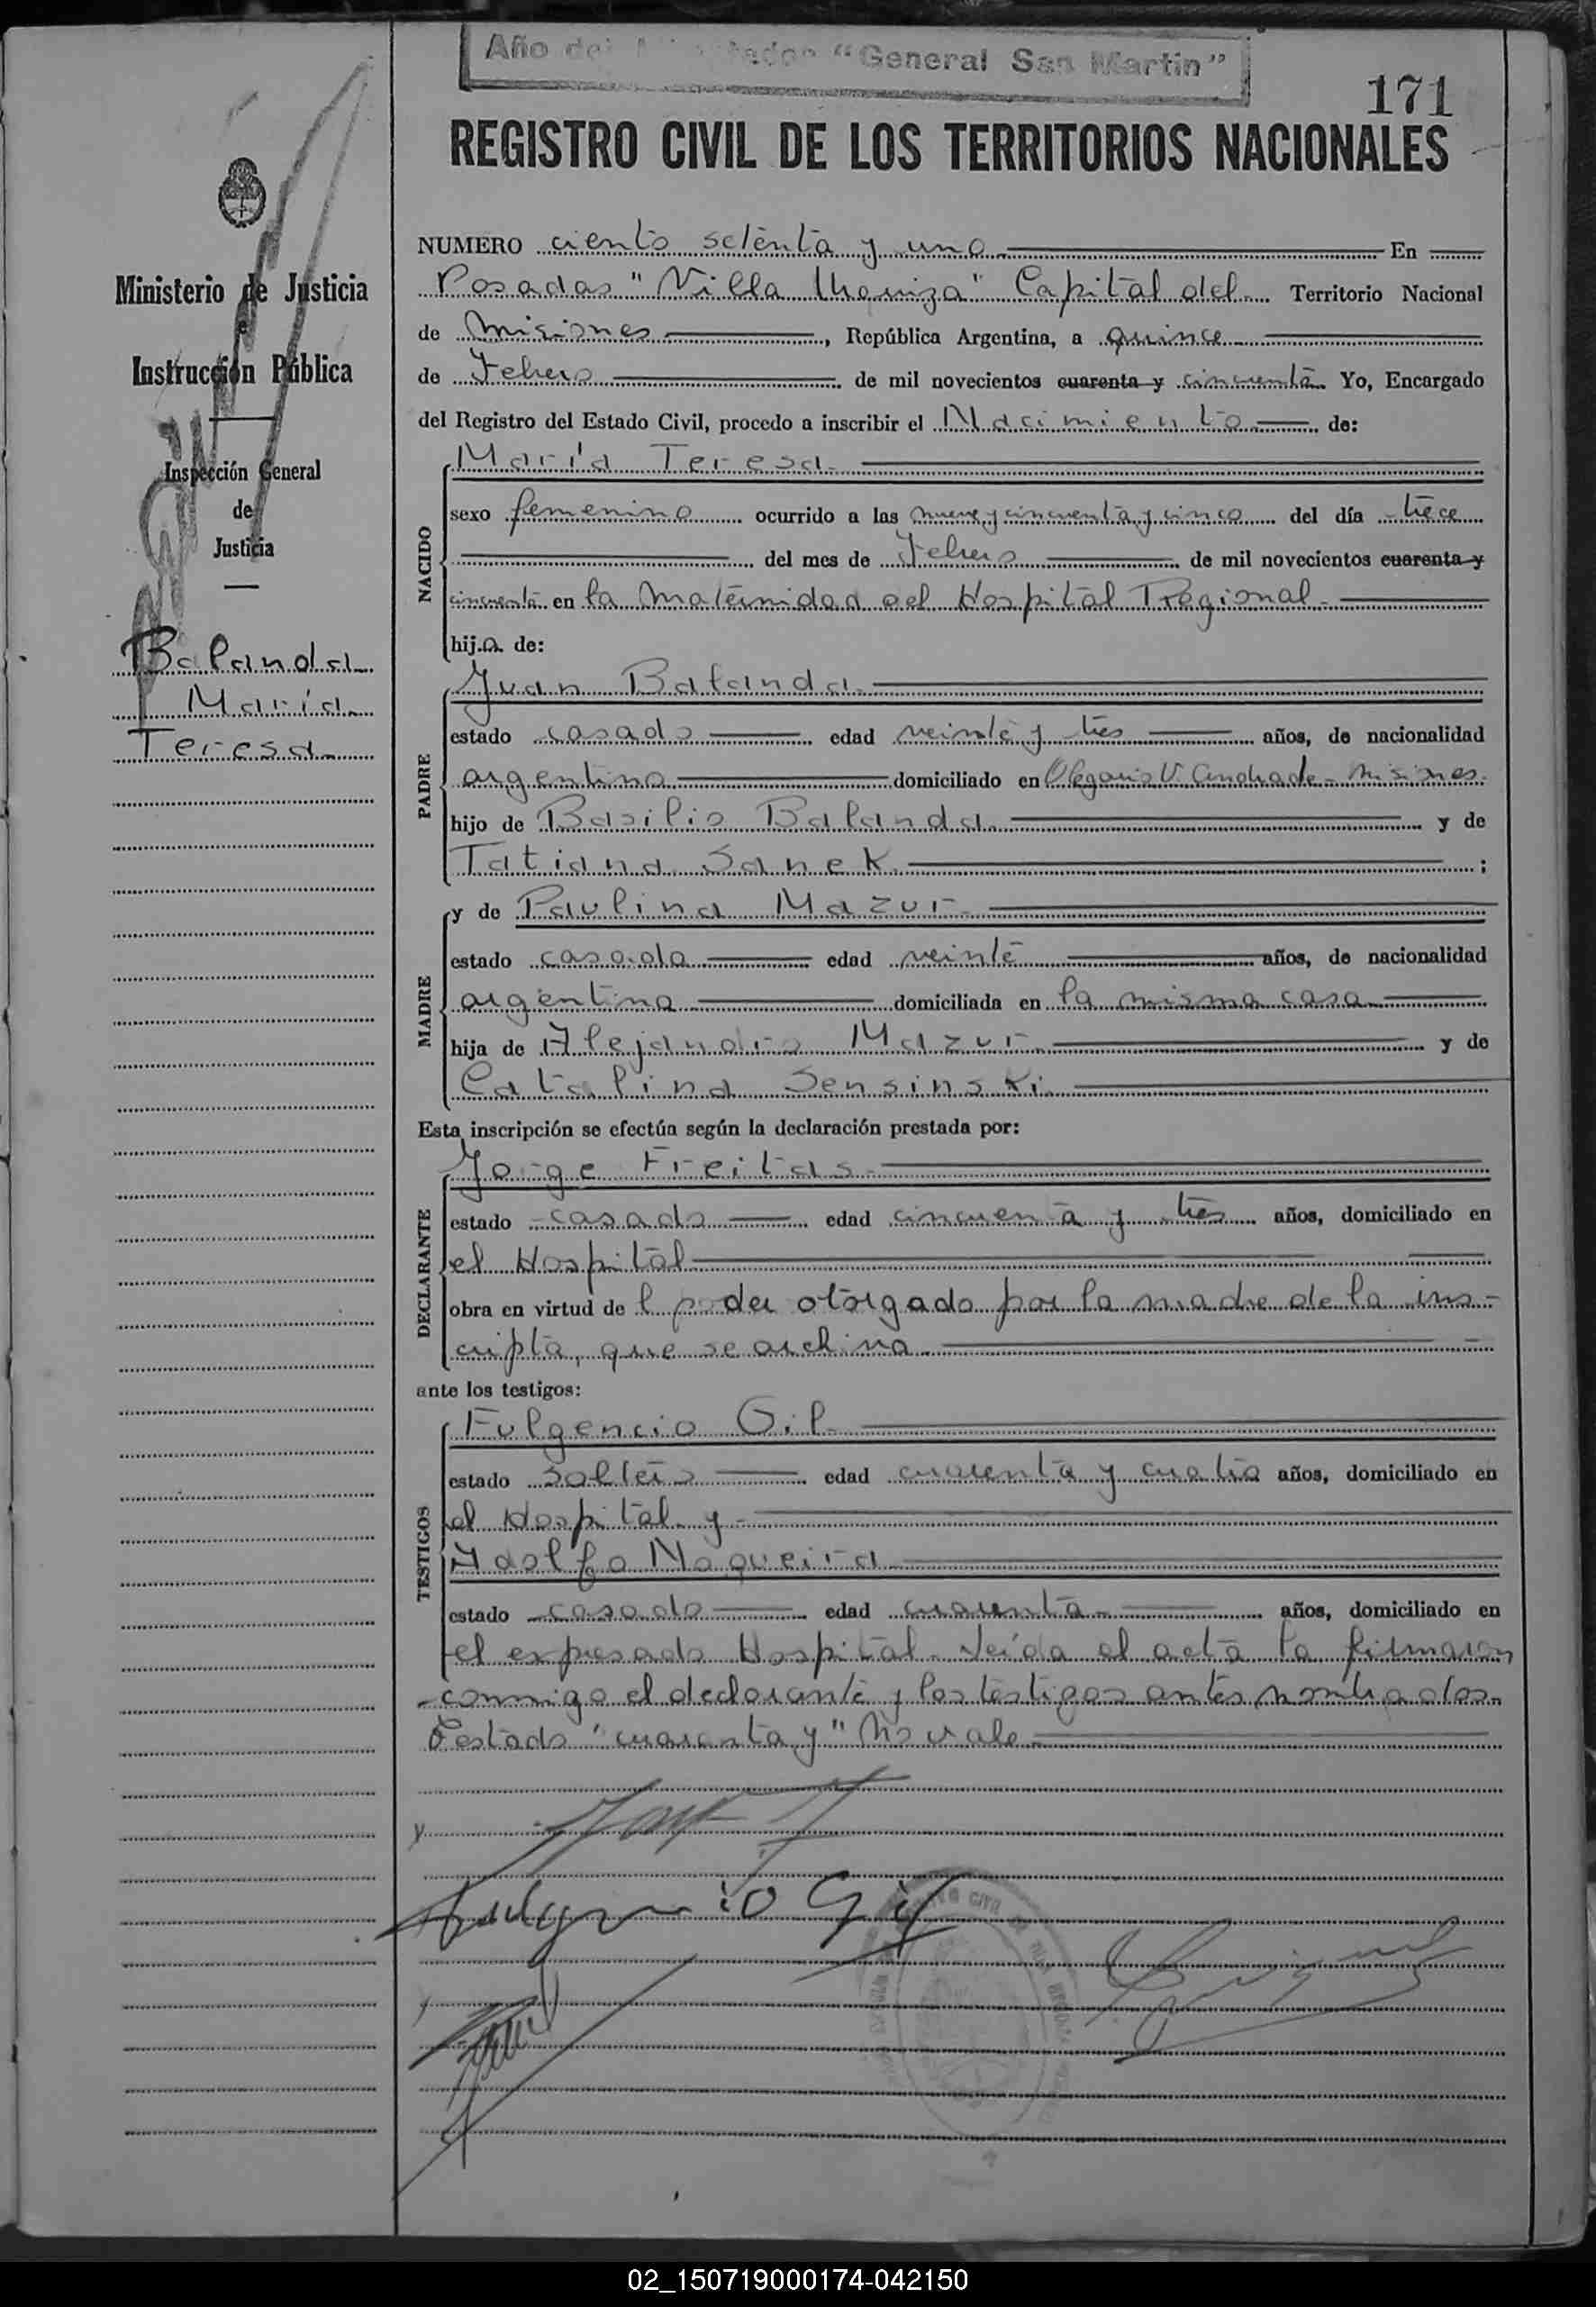 Año del Libertador "General San Martin"
171
REGISTRO CIVIL DE LOS TERRITORIOS NACIONALES
Ministerio de Justicia
e
Instrucción Pública
Inspección General
de
Justicia
Balanda
María
Teresa
NUMERO ciento setenta y uno En
Posadas "Villa Urquiza" Capital del Territorio Nacional
de Misiones, República Argentina, a quince
de Febrero de mil novecientos cuarenta y cincuenta Yo, Encargado
del Registro del Estado Civil, procedo a inscribir el Nacimiento de:
NACIDO
María Teresa
sexo femenino ocurrido a las nueve y cincuenta y cinco del día trece
del mes de Febrero de mil novecientos cuarenta y
cincuenta en la Maternidad del Hospital Regional
hija de:
PADRE
Juan Balanda
estado casado edad veinte y tres años, de nacionalidad
argentina domiciliado en Olegario V. Andrade - Misiones
hijo de Basilio Balanda y de
Tatiana Sanek ;
MADRE
y de Paulina Mazur
estado casada edad veinte años, de nacionalidad
argentina domiciliada en la misma casa
hija de Alejandro Mazur y de
Catalina Sensinski
Esta inscripción se efectúa según la declaración prestada por:
DECLARANTE
Jorge Freitas
estado casado edad cincuenta y tres años, domiciliado en
el Hospital
obra en virtud del poder otorgado por la madre de la ins-
cripta, que se archiva
ante los testigos:
TESTIGOS
Fulgencio Gil
estado soltero edad cuarenta y cuatro años, domiciliado en
el Hospital y
Adolfo Noqueira
estado casado edad cuarenta años, domiciliado en
el expresado Hospital. Leída el acta la firmaron
conmigo el declarante y los testigos antes nombrados.
Testado "cuarenta y" No vale
Fulgencio Gil
02_150719000174-042150